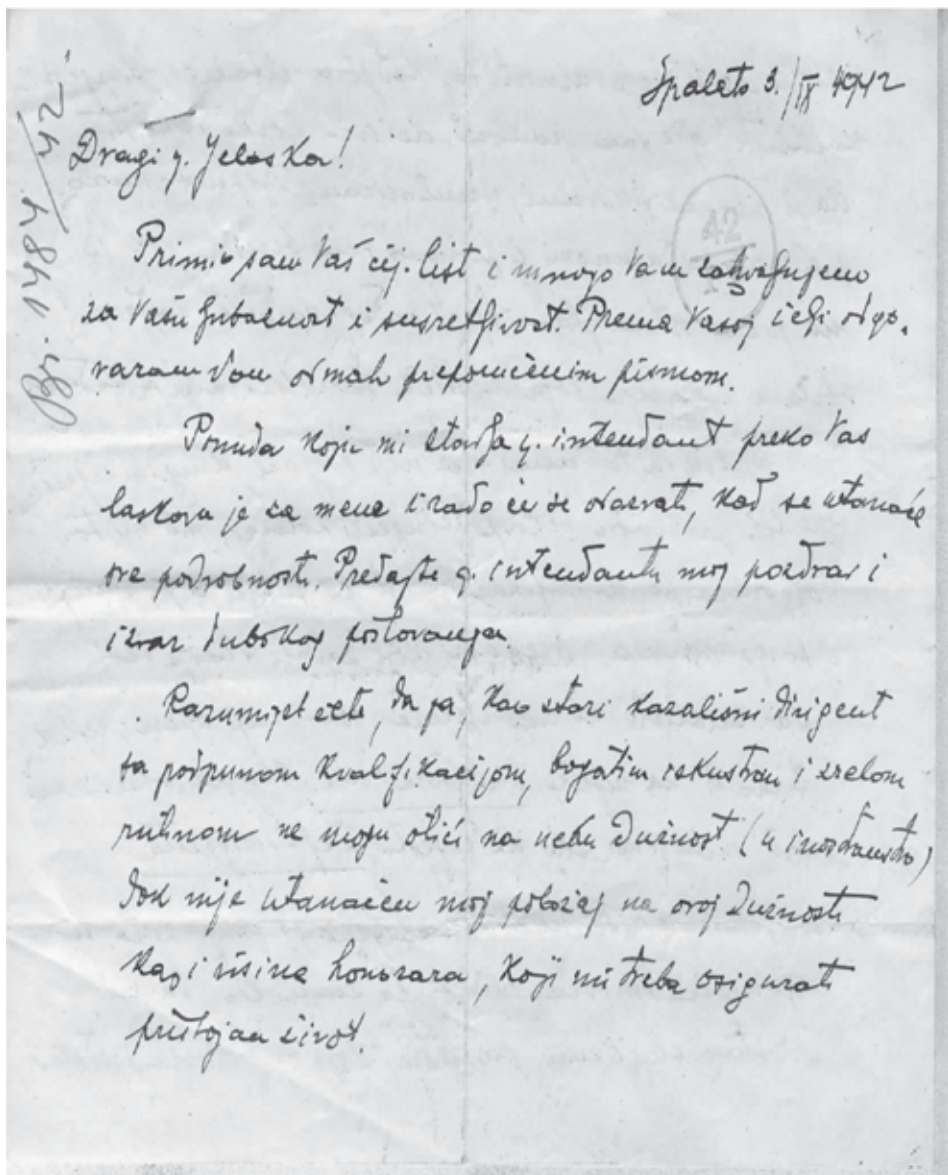 Spaleto 3./IX 1942
Dragi g. Jeloska!
Primio sam Vaš cij. list i mnogo Vam zahvaljujem
za Vašu ljubaznost i susretljivost. Prema Vašoj želji odgo-
varam Vam odmah preporučenim pismom.
Ponuda koju mi stavlja g. intendant preko Vas
laskava je za mene i rado ću se odazvati, kad se utanače
sve podrobnosti. Predajte g. intendantu moj pozdrav i
izraz dubokog poštovanja
Razumijet ćete, da ja, kao stari kazališni dirigent
sa podpunom kvalifikacijom, bogatim iskustvom i zrelom
rutinom ne mogu otići na neku dužnost (u inozemstvo)
dok nije utanačen moj položaj na ovoj dužnosti
kao i visina honorara, koji mi treba osigurati
pristojan život.
Dgi. 1484/42
42